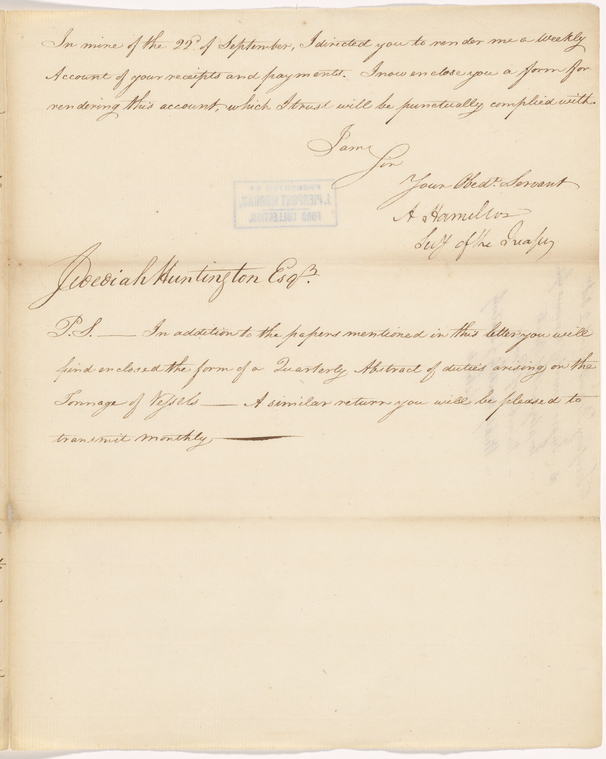 In mine of the 22ᵈ of September, I directed you to render me a Weekly
Account of your receipts and payments. I now enclose you a form for
rendering this account, which I trust will be punctually complied with.
I am
Sir
Your Obedᵗ. Servant
A Hamilton
Secy of the Treasy
PRESENTED BY
J. PIERPONT MORGAN.
FORD COLLECTION.
Jedediah Huntington Esqʳ.
P.S. — In addition to the papers mentioned in this letter you will
find enclosed the form of a Quarterly Abstract of duties arising on the
Tonnage of Vessels — A similar return you will be pleased to
transmit monthly —